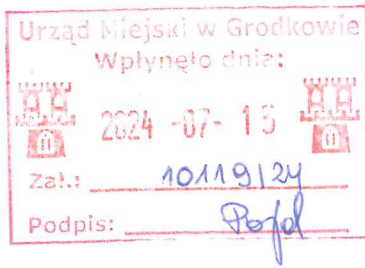 Urząd Miejski w Grodkowie
Wpłynęło dnia:
2024 -07- 15
Zał.: 10119/24
Podpis: